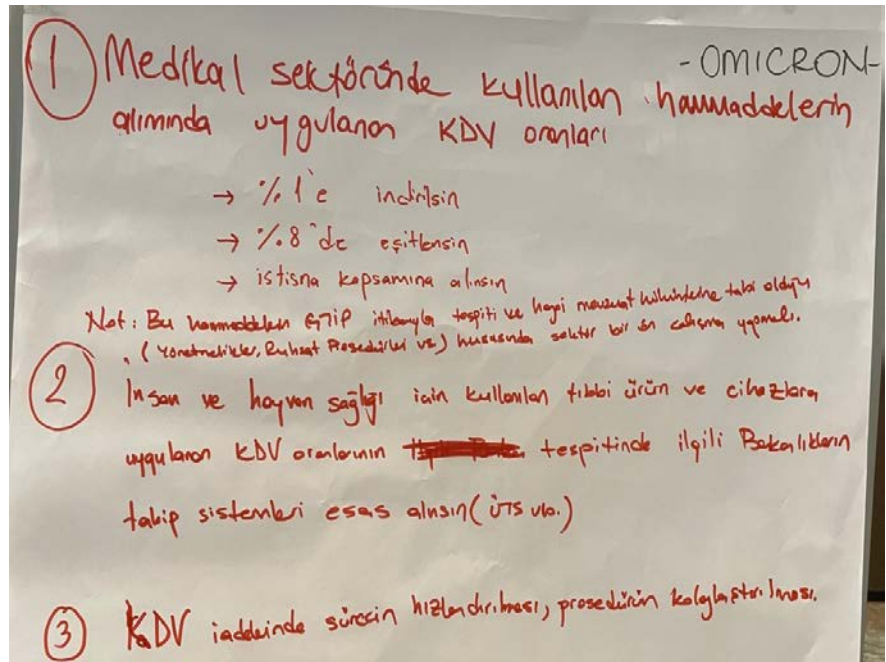 -OMICRON-
1 Medikal sektöründe kullanılan hammaddelerin
alımında uygulanan KDV oranları
→ %1'e indirilsin
→ %8'de eşitlensin
→ istisna kapsamına alınsın
Not: Bu hammaddelerin GTİP itibarıyla tespiti ve hangi mevzuat hükümlerine tabi olduğu
(Yönetmelikler, Ruhsat Prosedürleri vs) hususunda sektör bir ön çalışma yapmalı.
2 İnsan ve hayvan sağlığı için kullanılan tıbbi ürün ve cihazlara
uygulanan KDV oranlarının tespitinde ilgili Bakanlıkların
takip sistemleri esas alınsın (ÜTS vb.)
3 KDV iadesinde sürecin hızlandırılması, prosedürün kolaylaştırılması.